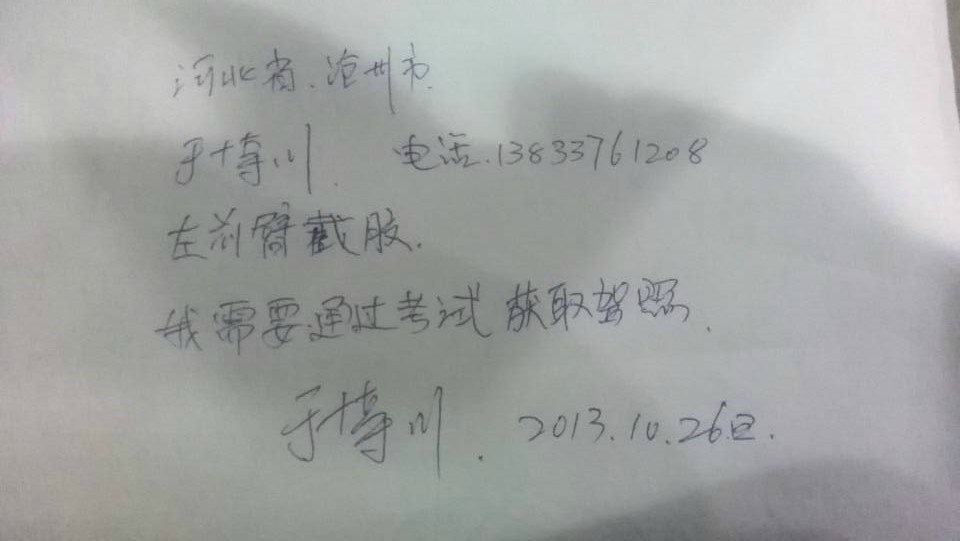 河北省.沧州市.
于博川. 电话.13833761208
左前臂截肢.
我需要通过考试获取驾照.
于博川. 2013.10.26日.